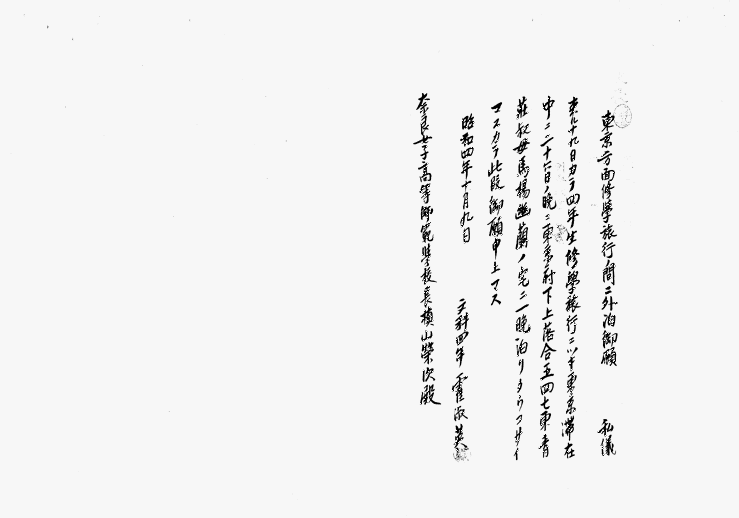 東京方面修學旅行ノ間ニ外泊御願　私儀
来ル十九日カラ四年生修學旅行ニツキ東京滞在
中ニ二十六日ノ晩ニ東京府下上落合五四七東青
莊叔母馬楊幽蘭ノ宅ニ一晩泊リタウゴザイ
マスカラ此段御願申上マス
昭和四年十月九日
文科四年　霍淑英
奈良女子高等師範學校長槇山榮次殿